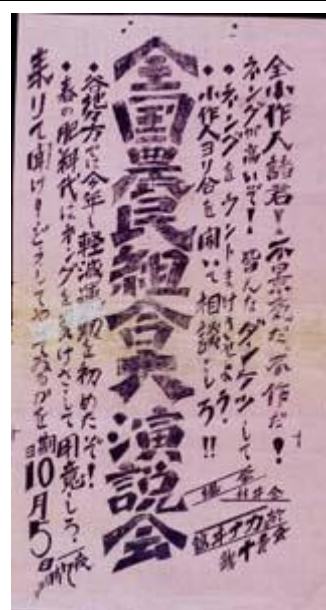 全小作人諸君よ不景気だ不作だ！
ネングが高いぞ！皆んなダンケツして
・ネングをウントまけさせよう。
・小作人ヨリ合を開いて相談しろ！！
全国農民組合大演説会
・各地方では今年も軽減運動を初めたぞ！
・春の肥料代にネングをまけさして用意しろ。
来りて聞け！どうしてやってるかを
日期10月5日